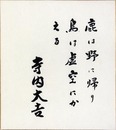 鹿は野に帰り
鳥は虚空にか
える
寺内大吉